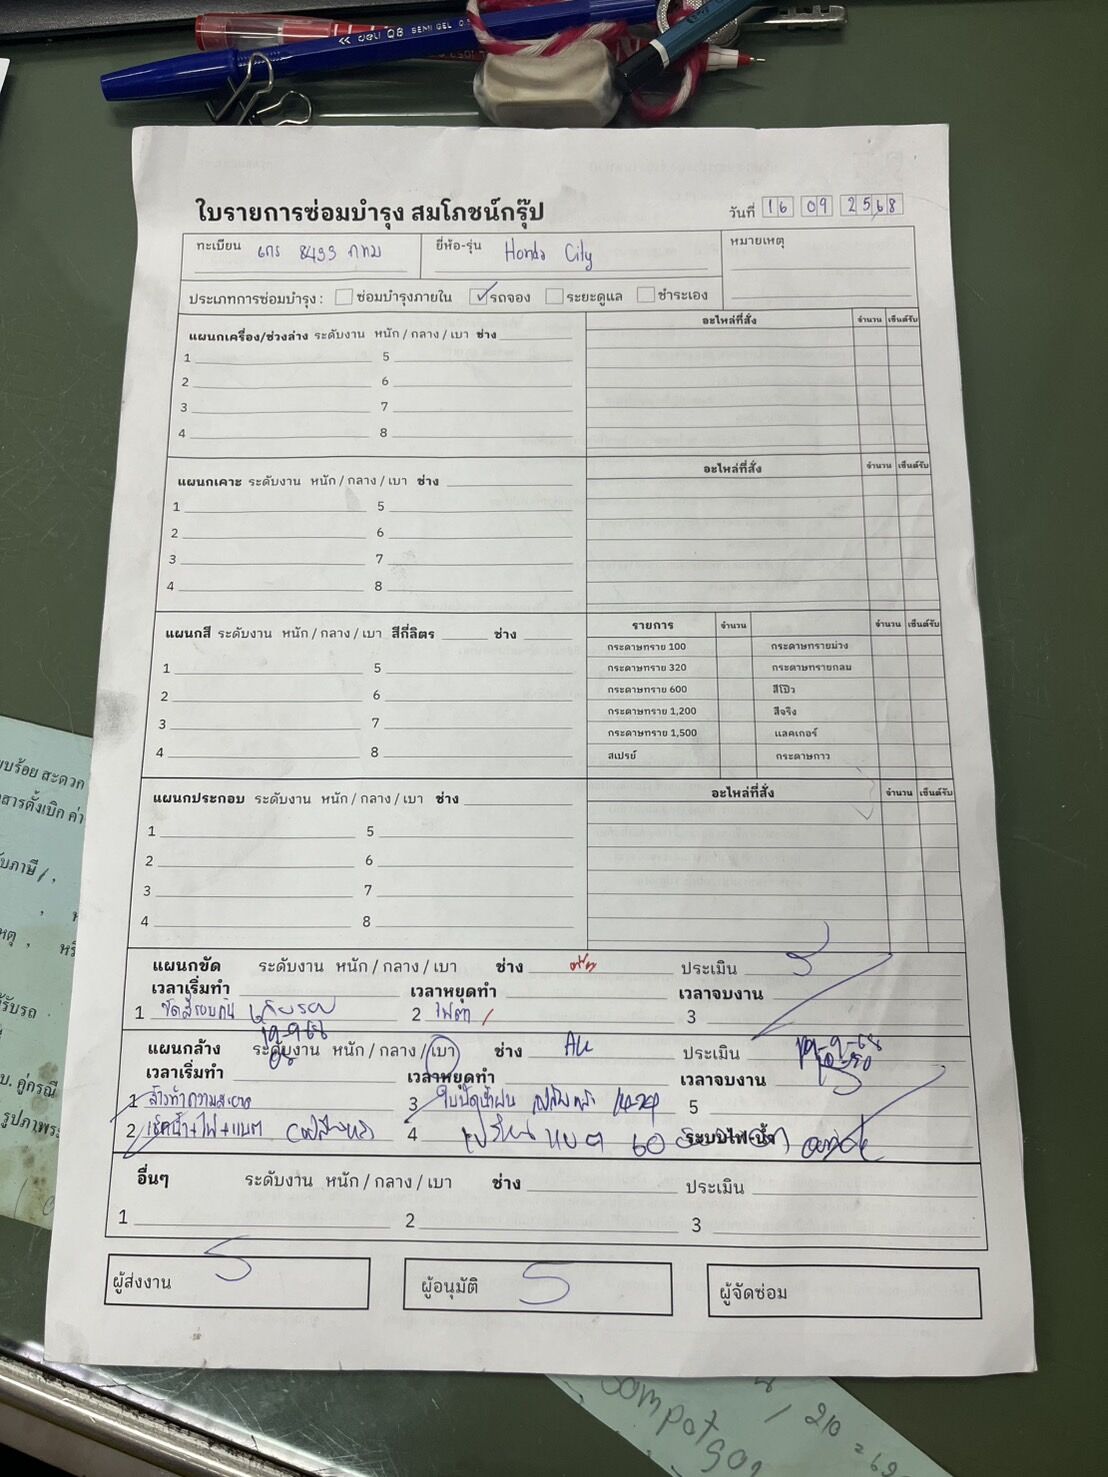 deli Q8 SEMI GEL 0.5
ใบรายการซ่อมบำรุง สมโภชน์กรุ๊ป
วันที่ 16 09 2568
ทะเบียน 8499 กทม
ยี่ห้อ-รุ่น Honda City
หมายเหตุ
ประเภทการซ่อมบำรุง : ซ่อมบำรุงภายใน ✓ รถจอง ระยะดูแล ชำระเอง
แผนกเครื่อง/ช่วงล่าง ระดับงาน หนัก / กลาง / เบา ช่าง
อะไหล่ที่สั่ง จำนวน เซ็นต์รับ
1 5
2 6
3 7
4 8
แผนกเคาะ ระดับงาน หนัก / กลาง / เบา ช่าง
อะไหล่ที่สั่ง จำนวน เซ็นต์รับ
1 5
2 6
3 7
4 8
แผนกสี ระดับงาน หนัก / กลาง / เบา สีกี่ลิตร ช่าง
รายการ จำนวน จำนวน เซ็นต์รับ
กระดาษทราย 100 กระดาษทรายม่วง
1 5
กระดาษทราย 320 กระดาษทรายกลม
2 6
กระดาษทราย 600 สีโป๊ว
3 7
กระดาษทราย 1,200 สีจริง
4 8
กระดาษทราย 1,500 แลคเกอร์
สเปรย์ กระดาษกาว
แผนกประกอบ ระดับงาน หนัก / กลาง / เบา ช่าง
อะไหล่ที่สั่ง จำนวน เซ็นต์รับ
1 5
2 6
3 7
4 8
แผนกขัด ระดับงาน หนัก / กลาง / เบา ช่าง ประเมิน
เวลาเริ่มทำ เวลาหยุดทำ เวลาจบงาน
1 ขัดสีรอบคัน เก็บรอย 2 ไฟตา 3
แผนกล้าง ระดับงาน หนัก / กลาง / เบา ช่าง ประเมิน
19-9-68
เวลาเริ่มทำ เวลาหยุดทำ เวลาจบงาน
1 ล้างทำความสะอาด 3 ใบปัดน้ำฝน 5
2 เช็คน้ำ+ไฟ+แบต 4 แบต 60 ระบบไฟ-น้ำ
อื่นๆ ระดับงาน หนัก / กลาง / เบา ช่าง ประเมิน
1 2 3
ผู้ส่งงาน
ผู้อนุมัติ
ผู้จัดซ่อม
สะดวก
คู่กรณี
รูปภาพ
/ 210